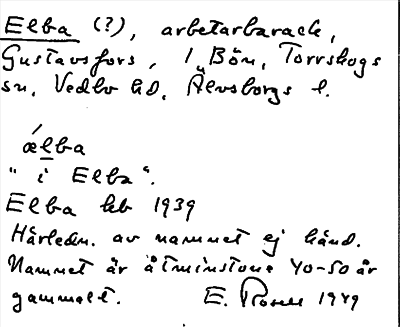 Elba (?), arbetarbarack,
Gustavsfors, 1 Bön, Torrskogs
sn, Vedbo hd, Älvsborgs l.
ǽlba
"i Elba".
Elba kb 1939
Härledn. av namnet ej känd.
Namnet är åtminstone 40-50 år
gammalt. E. Rosell 1949